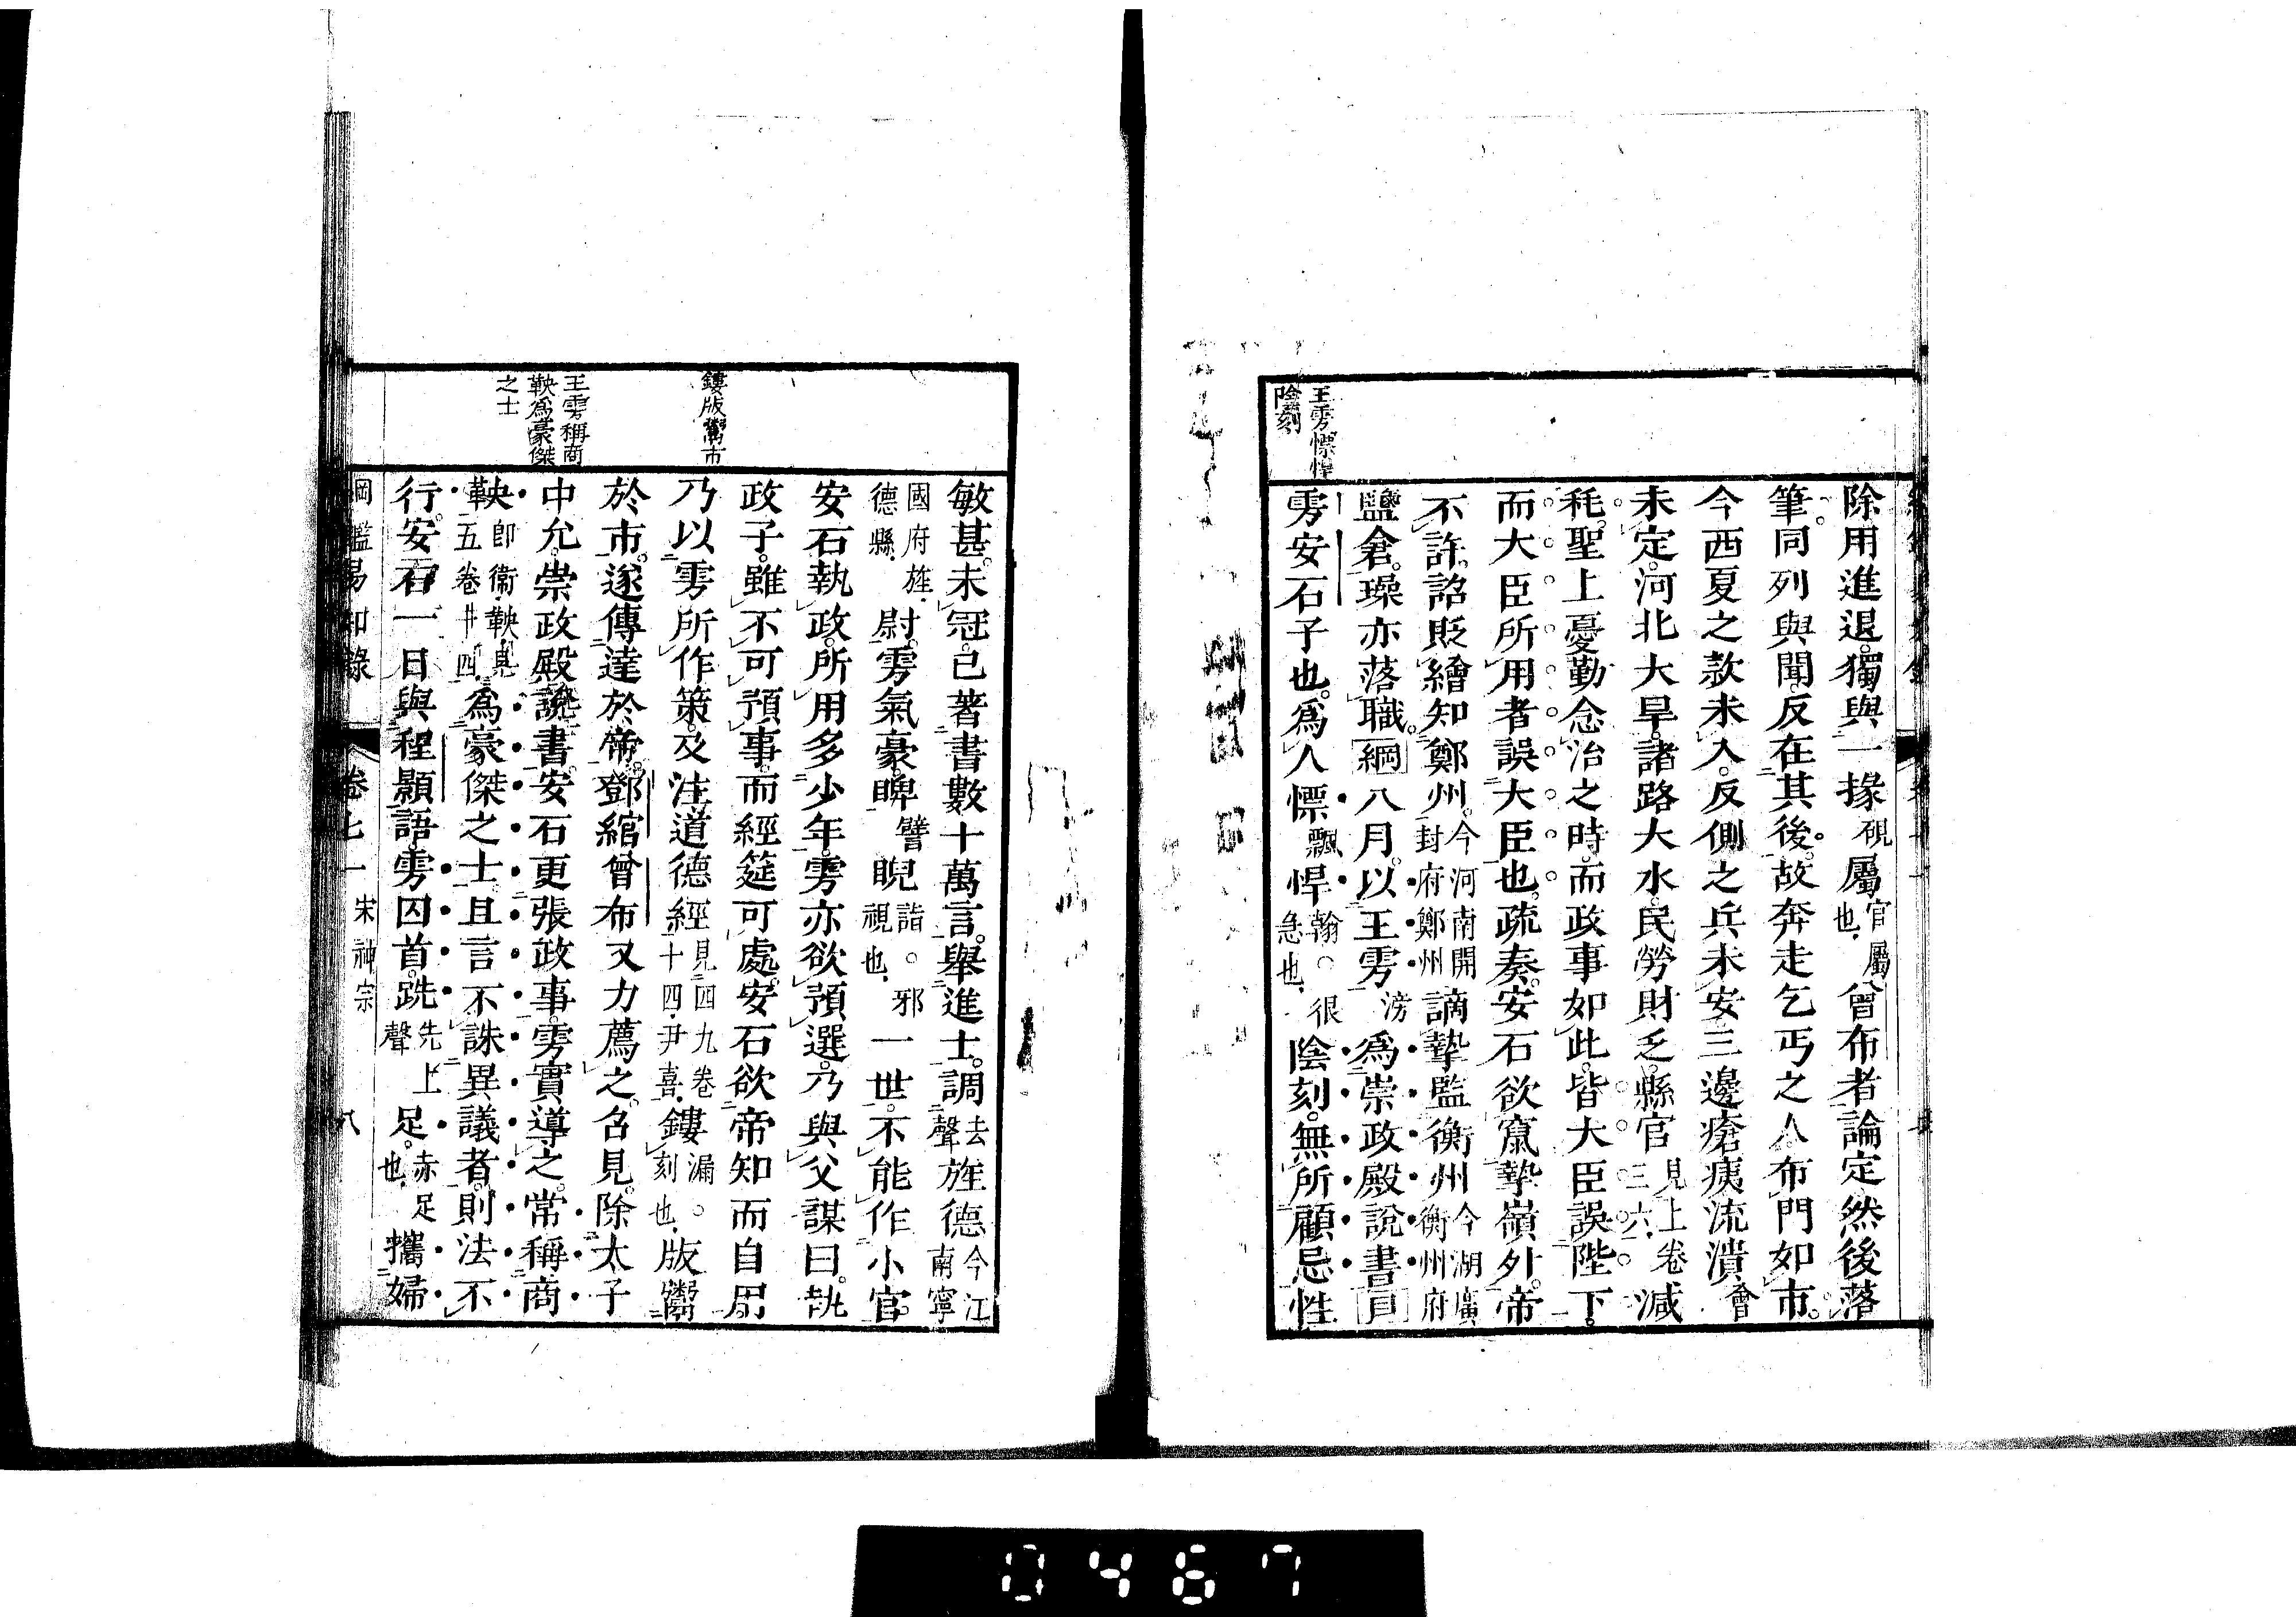 除用進退。獨與一掾硯屬官屬也。曾布者論定。然後落
筆。同列與聞。反在其後。故奔走乞丐之人。布門如市。
今西夏之款未入。反側之兵未安。三邊瘡痍流潰會
未定。河北大旱。諸路大水。民勞財乏。縣官見上卷三六。減
秏。聖上憂勤念治之時。而政事如此。皆大臣誤陛下。
而大臣所用者誤大臣也。疏奏。安石欲竄摯嶺外。帝
不許。詔貶繪知鄭州。今河南開封府鄭州謫摯監衡州今湖廣衡州府
鹽倉。璪亦落職。綱八月。以王雱滂爲崇政殿說書。目
雱安石子也。爲人慓飄悍翰。很急也。陰刻。無所顧忌。性
王雱慓悍
陰刻
敏甚。未冠。已著書數十萬言。舉進士。調去聲旌德今江南寧
國府旌德縣。尉。雱氣豪。睥譬睨詣。邪視也。一世。不能作小官。
安石執政。所用多少年。雱亦欲預選。乃與父謀曰。執
政子。雖不可預事。而經筵可處。安石欲帝知而自用。
乃以雱所作策。及注道德經見四九卷十四。尹喜。鏤漏。刻也。版鬻
於市。遂傳達於帝。鄧綰曾布又力薦之。召見。除太子
中允。崇政殿說書。安石更張政事。雱實導之。常稱商
鞅即衞鞅。見五卷廿四爲豪傑之士。且言不誅異議者。則法不
行。安石一日與程顥語。雱囚首。跣先上聲足。赤足也。攜婦
鏤版鬻市
王雱稱商
鞅爲豪傑
之士
綱鑑易知錄 卷七一 宋神宗 八
0467